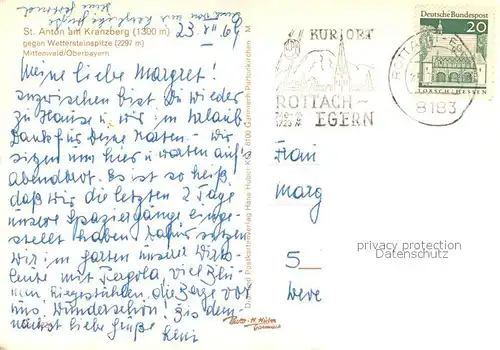 St. Anton am Kranzberg (1300 m)
gegen Wettersteinspitze (2297 m)
Mittenwald/Oberbayern
23. VII 69
Meine liebe Margret!
Inzwischen bist Du wieder
zu Hause u. wir im Urlaub
Dank für Deine Karten. Wir
sitzen nun hier u. warten auf's
Abendbrot. Es ist so heiß
daß wir die letzten 2 Tage
unsere Spaziergänge einge-
stellt haben. Dafür sitzen
wir im Garten unserer Wirts-
leute mit Pergola, viel Blu-
men, Liegestühlen, die Berge vor
uns. Wunderschön! Bis dem-
nächst liebe Grüße
Leni
Postkartenverlag Hans Huber KG, 8100 Garmisch-Partenkirchen
KURORT
ROTTACH-
EGERN
ROTTACH-EG
8183
Deutsche Bundespost
20
LORSCH/HESSEN
Frau
Marg
5
Leve
privacy protection
Datenschutz